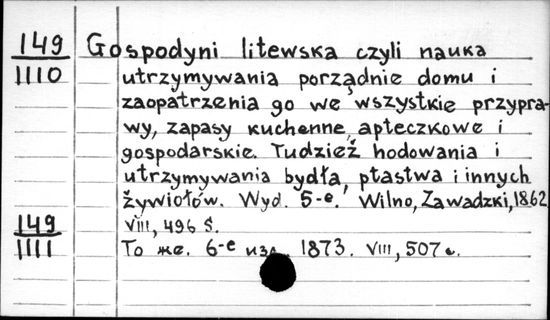 149
1110
Gospodyni litewska czyli nauka
utrzymywania porządnie domu i
zaopatrzenia go we wszystkie przypra-
wy, zapasy kuchenne, apteczkowe i
gospodarskie. Tudzież hodowania i
utrzymywania bydła, ptastwa i innych
żywiołów. Wyd. 5-e. Wilno, Zawadzki, 1862
VIII, 496 S.
149
1111
То же. 6-е изд. 1873. VIII, 507 с.